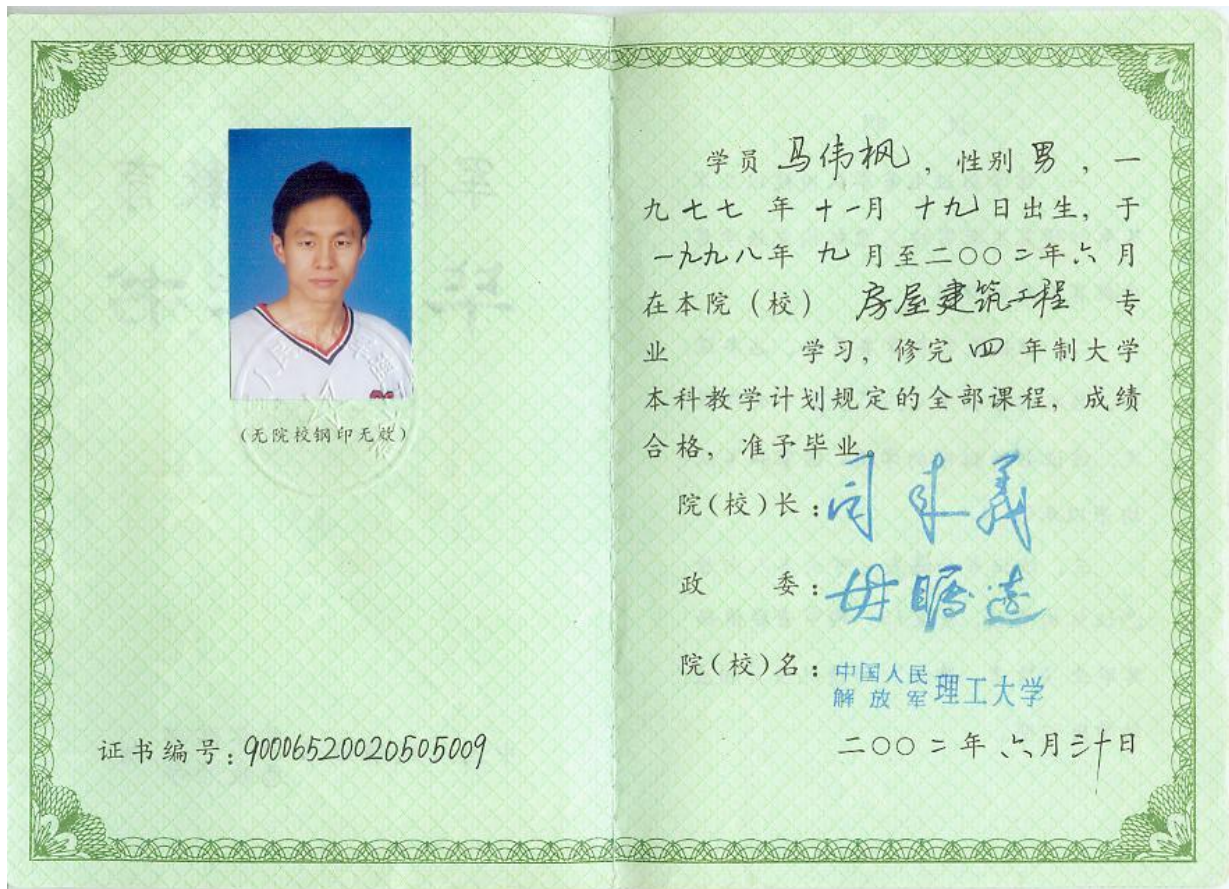 (无院校钢印无效)
证书编号:90006520020505009
学员 马伟枫 , 性别 男 , 一
九七七 年 十一月 十九日出生, 于
一九九八年 九 月至二〇〇二年六 月
在本院(校) 房屋建筑工程 专
业 学习, 修完 四 年制大学
本科教学计划规定的全部课程, 成绩
合格, 准予毕业。
院(校)长:司来义
政 委:
院(校)名:中国人民解放军理工大学
二〇〇二年 六月三十日